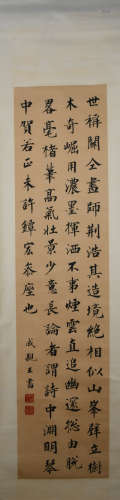 世稱關全畫師荊浩其造境絕相似山峯壁立樹
木奇崛用濃墨揮洒不事煙雲直追幽邃由脫
略毫楮筆高氣壯景少意長論者謂詩中淵明琴
中賀若正未許鐘宏參座也
成親王書